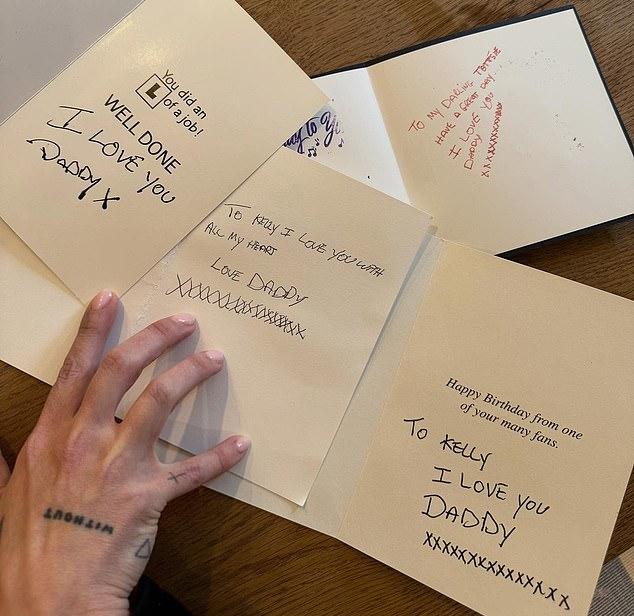 You did an
L of a job!
WELL DONE
I LOVE YOU
DADDY X
TO MY DARLING
HAVE A GREAT DAY
I LOVE YOU
DADDY
XXXXXXXXXXX
TO KELLY I LOVE YOU WITH
ALL MY HEART
LOVE DADDY
XXXXXXXXXXXXXXX
Happy Birthday from one
of your many fans.
TO KELLY
I LOVE YOU
DADDY
XXXXXXXXXXXXXXX
WITHOUT